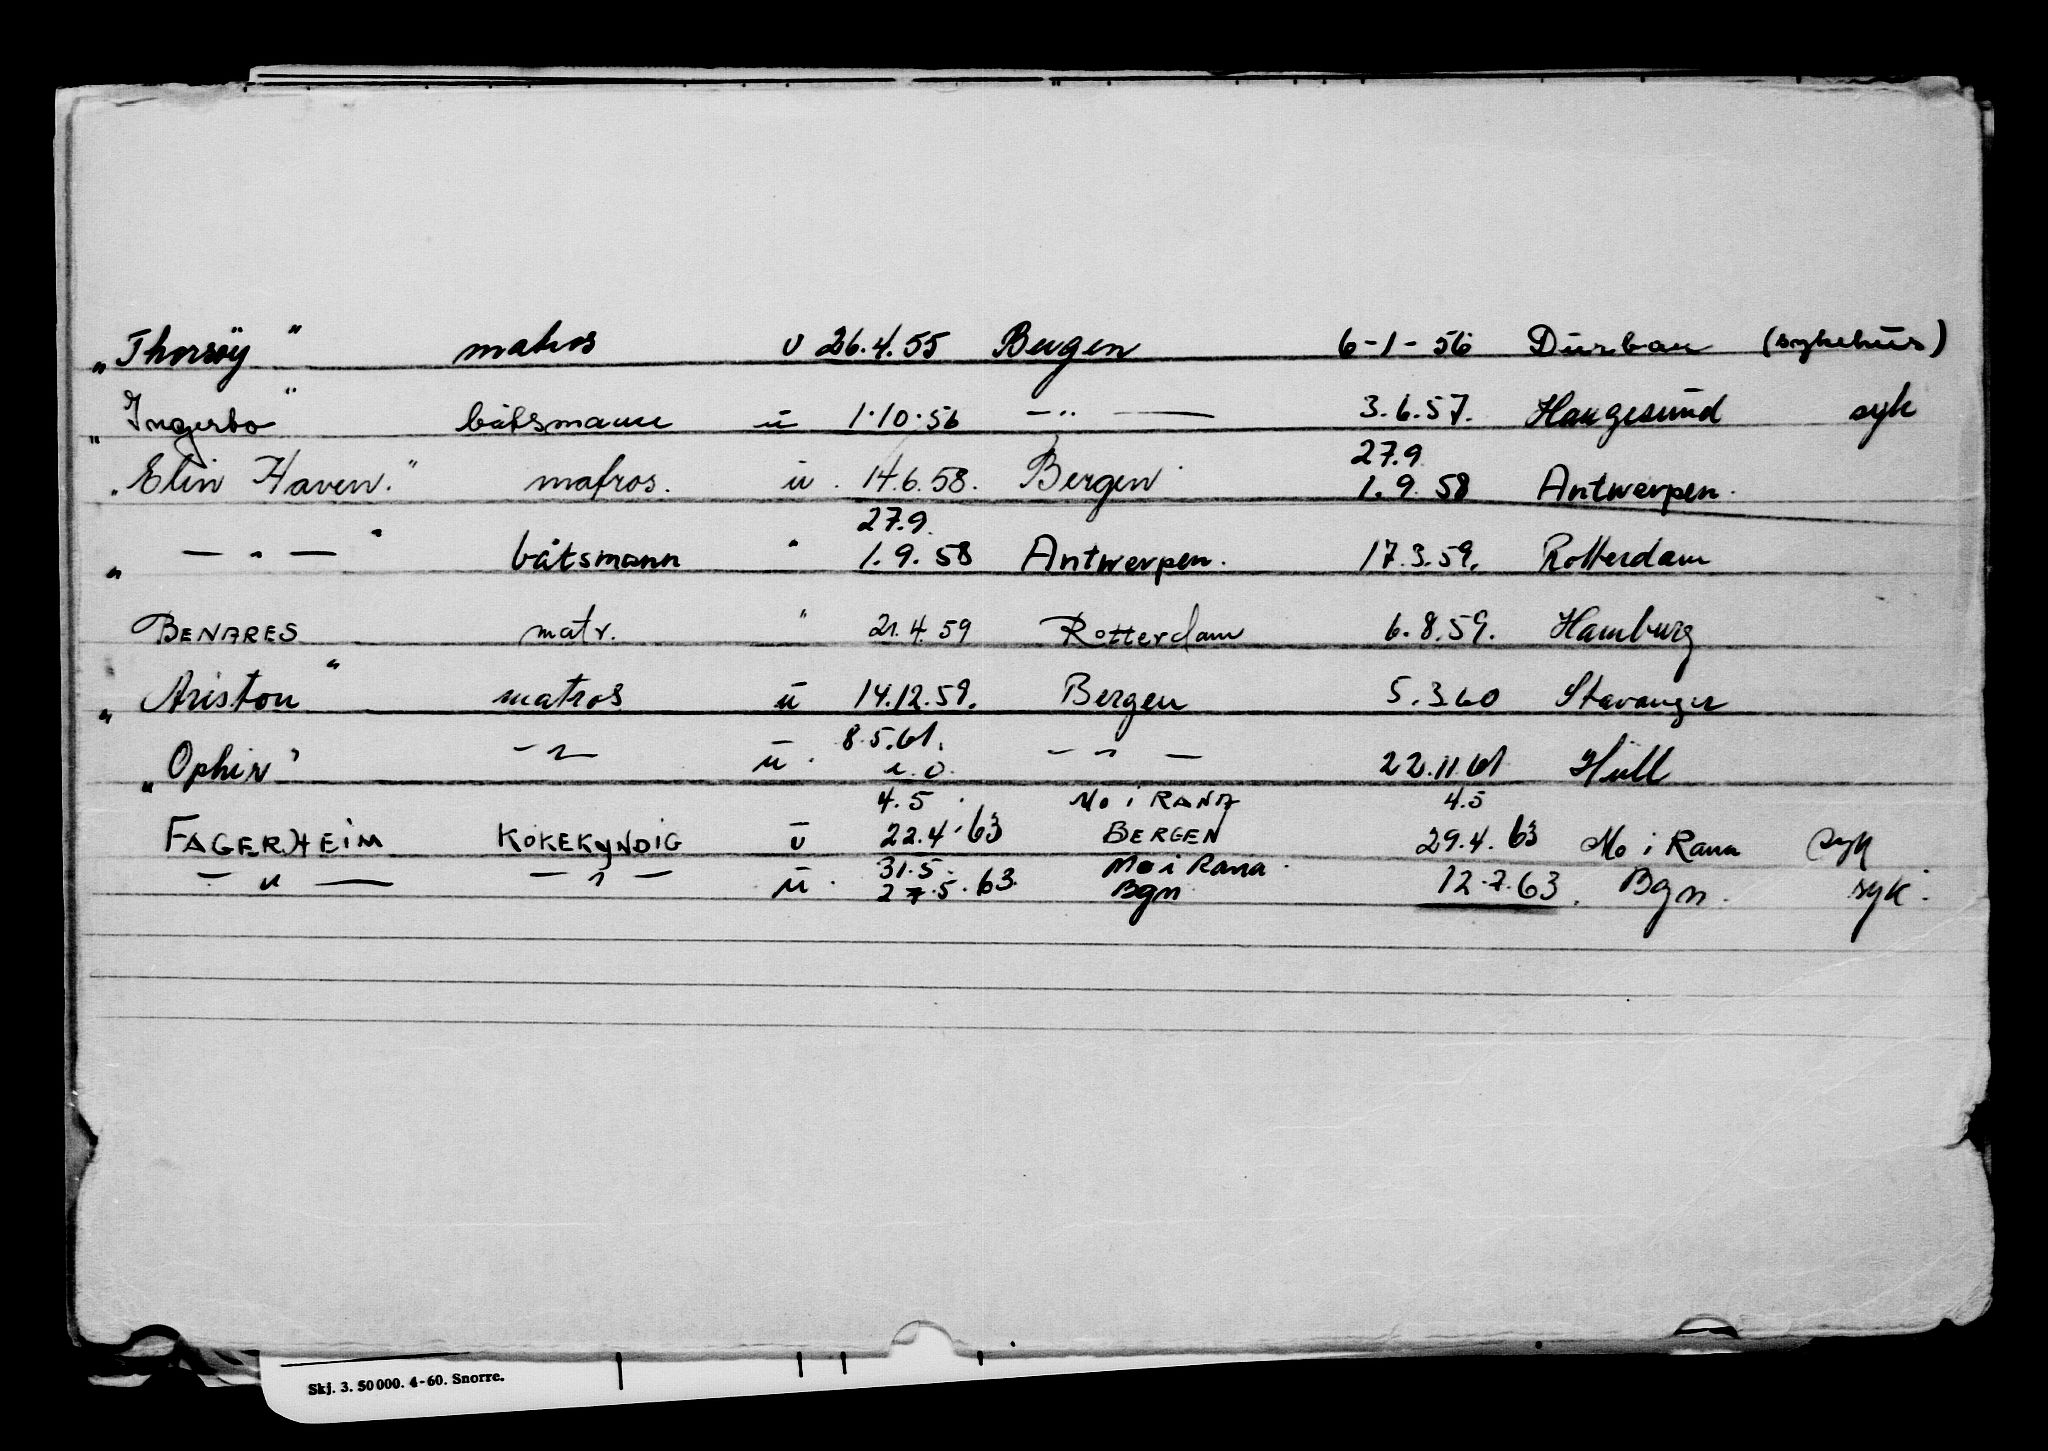 „Thorsøy" matros u 26.4.55 Bergen 6-1-56 Durban (sykehus)
„Ingerto" båtsmann u 1.10.56 -"- 3.6.57. Haugesund syk
27.9
„Elin Haven." matros. u. 14.6.58. Bergen 1.9.58 Antwerpen.
27.9.
„ — " — " båtsmann " 1.9.58 Antwerpen. 17.3.59. Rotterdam
BENARES matr. " 21.4.59 Rotterdam 6.8.59. Hamburg
„Ariston" matros u 14.12.59. Bergen 5.3.60 Stavanger
8.5.61.
„Ophir" - " - u. - " - 22.11.61 Hull
4.5. Mo i RANA 4.5
FAGERHEIM KOKEKYNDIG u 22.4.63 BERGEN 29.4.63 Mo i Rana syk
31.5. Mo i Rana.
- " - - " - u. 27.5.63. Bgn 12.7.63. Bgn. syk.
Skj. 3. 50 000. 4-60. Snorre.